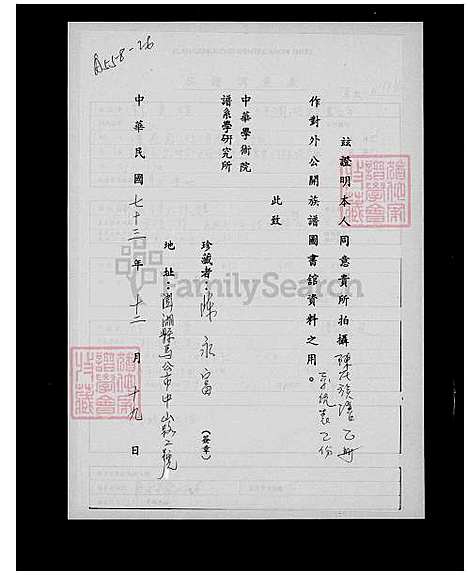 A558-26
玆證明本人同意貴所拍攝陳氏族譜乙冊
系統表乙份
作對外公開族譜圖書館資料之用。
此致
中華學術院
譜系學研究所
珍藏者：陳永富（簽章）
地址：澎湖縣馬公市中山路二號
中華民國七十三年十二月十九日
FamilySearch
譜學會